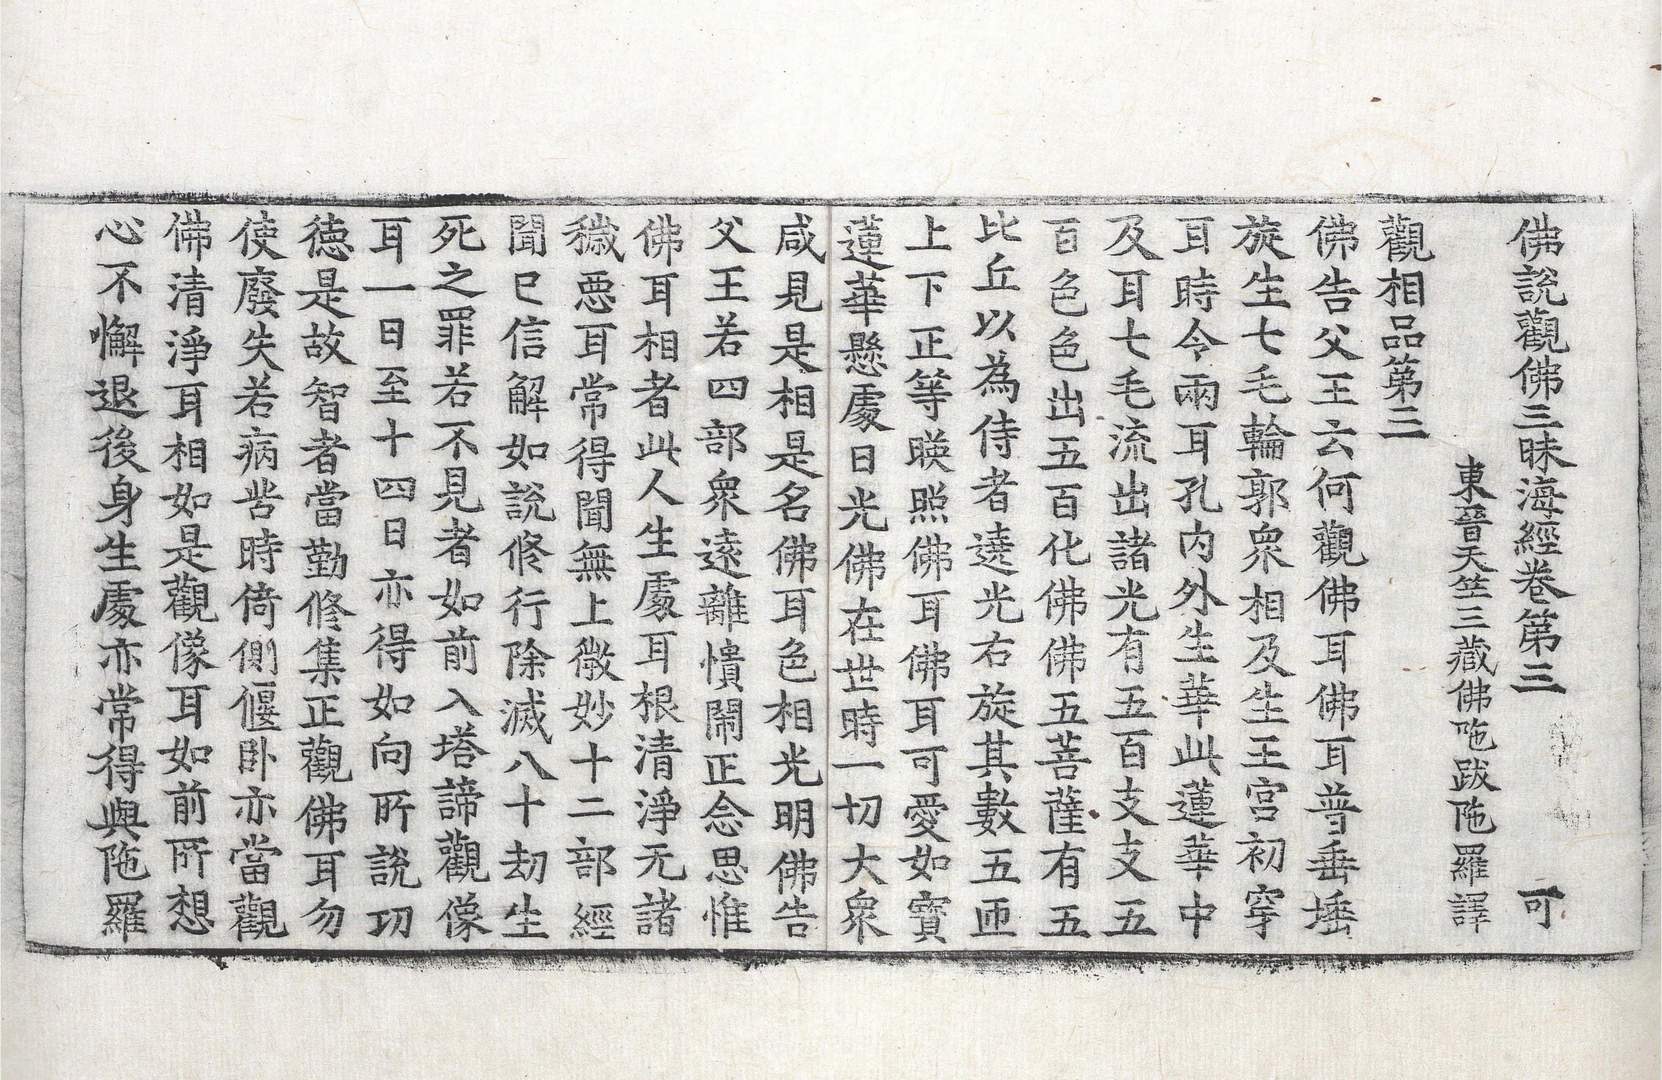 佛說觀佛三昧海經卷第三 可
東晉天竺三藏佛陁跋陁羅譯
觀相品第三
佛告父王云何觀佛耳佛耳普垂埵
旋生七毛輪郭衆相及生王宮初穿
耳時令兩耳孔内外生華此蓮華中
及耳七毛流出諸光有五百支支五
百色色出五百化佛佛五菩薩有五
比丘以為侍者遶光右旋其數五匝
上下正等暎照佛耳佛耳可愛如寳
蓮華懸處日光佛在世時一切大衆
咸見是相是名佛耳色相光明佛告
父王若四部衆遠離憒閙正念思惟
佛耳相者此人生處耳根清淨无諸
穢惡耳常得聞無上微妙十二部經
聞已信解如說修行除滅八十劫生
死之罪若不見者如前入塔諦觀像
耳一日至十四日亦得如向所說功
德是故智者當勤修集正觀佛耳勿
使廢失若病苦時倚側偃卧亦當觀
佛清淨耳相如是觀像耳如前所想
心不懈退後身生處亦常得與陁羅